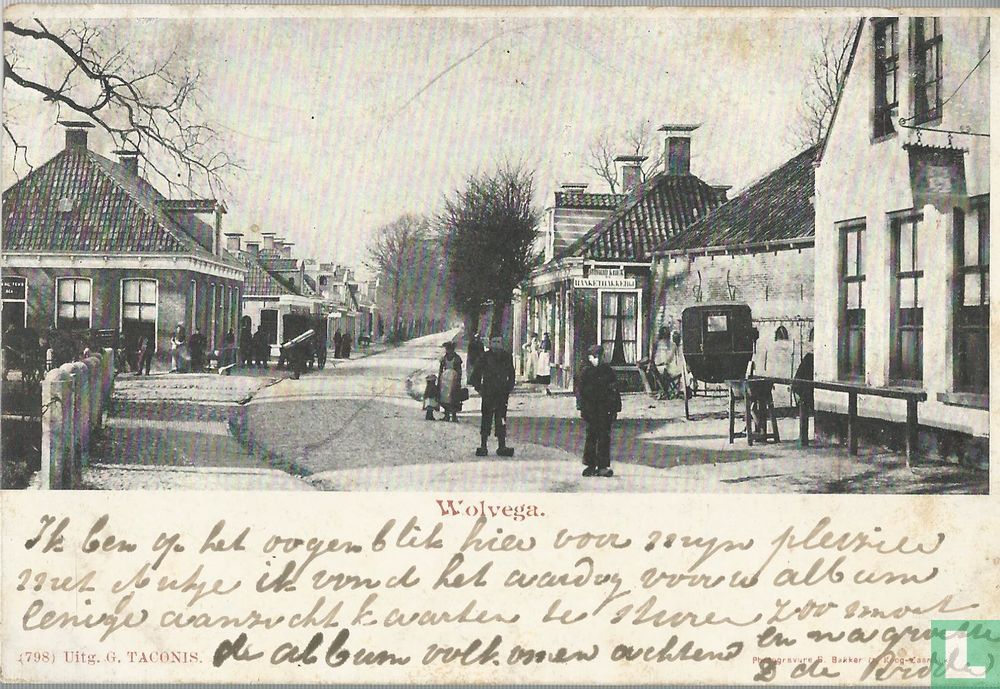 BANKETBAKKERIJ
Wolvega.
Ik ben op het oogenblik hier voor mijn pleizier
met Antje ik vond het aardig voor u album
eenige aanzichtkaarten te sturen zoo moet
de album volkomen achtend en na groete
D de
(798) Uitg. G. TACONIS.
Photogravure B. Bakker Koog-Zaandijk